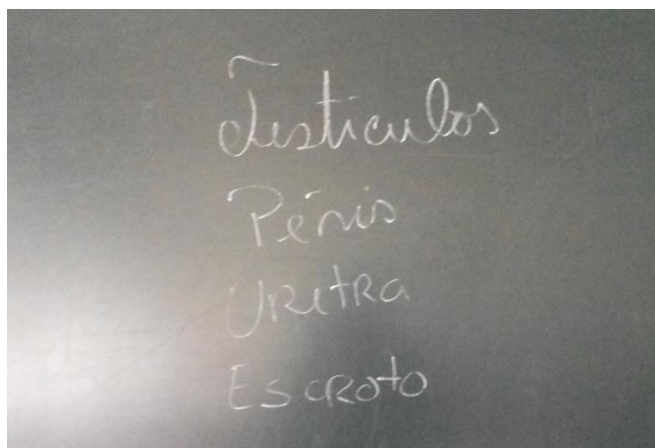 Testiculos
Pénis
Uretra
Escroto